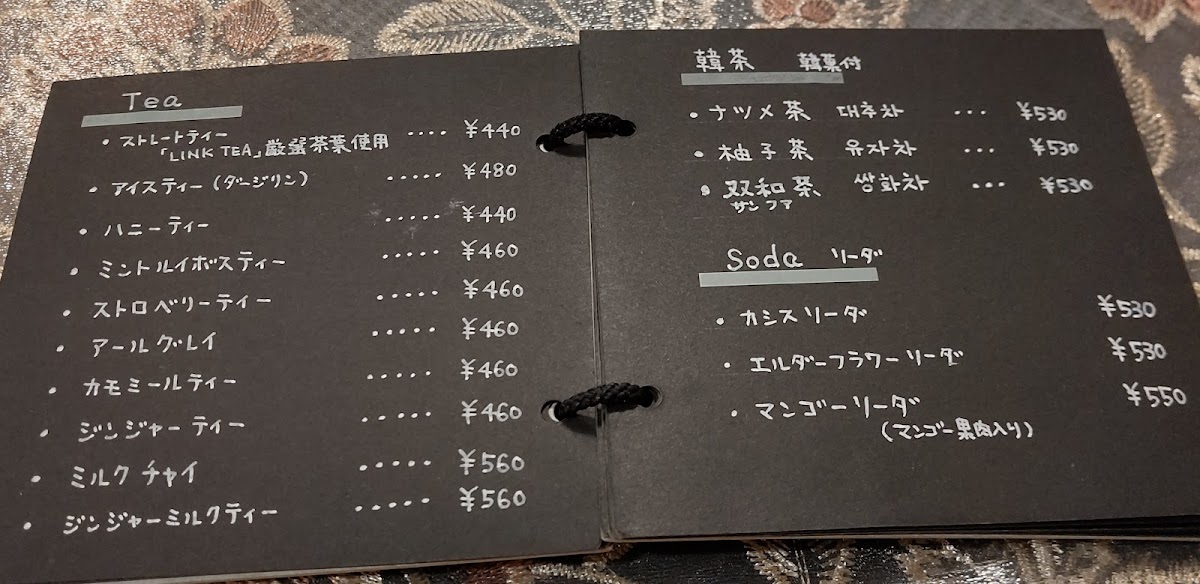 Tea
・ストレートティー ‥‥ ¥440
「LINK TEA」厳選茶葉使用
・アイスティー(ダージリン) ‥‥・ ¥480
・ハニーティー ‥‥・ ¥440
・ミントルイボスティー ‥‥・ ¥460
・ストロベリーティー ‥‥・ ¥460
・アールグレイ ‥‥・ ¥460
・カモミールティー ‥‥・ ¥460
・ジンジャーティー ‥‥・ ¥460
・ミルクチャイ ‥‥・ ¥560
・ジンジャーミルクティー ‥‥・ ¥560
韓茶 韓菓付
・ナツメ茶 대추차 … ¥530
・柚子茶 유자차 … ¥530
・双和茶 쌍화차 … ¥530
サンファ
Soda リーダ
・カシスリーダ ¥530
・エルダーフラワーリーダ ¥530
・マンゴーリーダ ¥550
(マンゴー果肉入り)